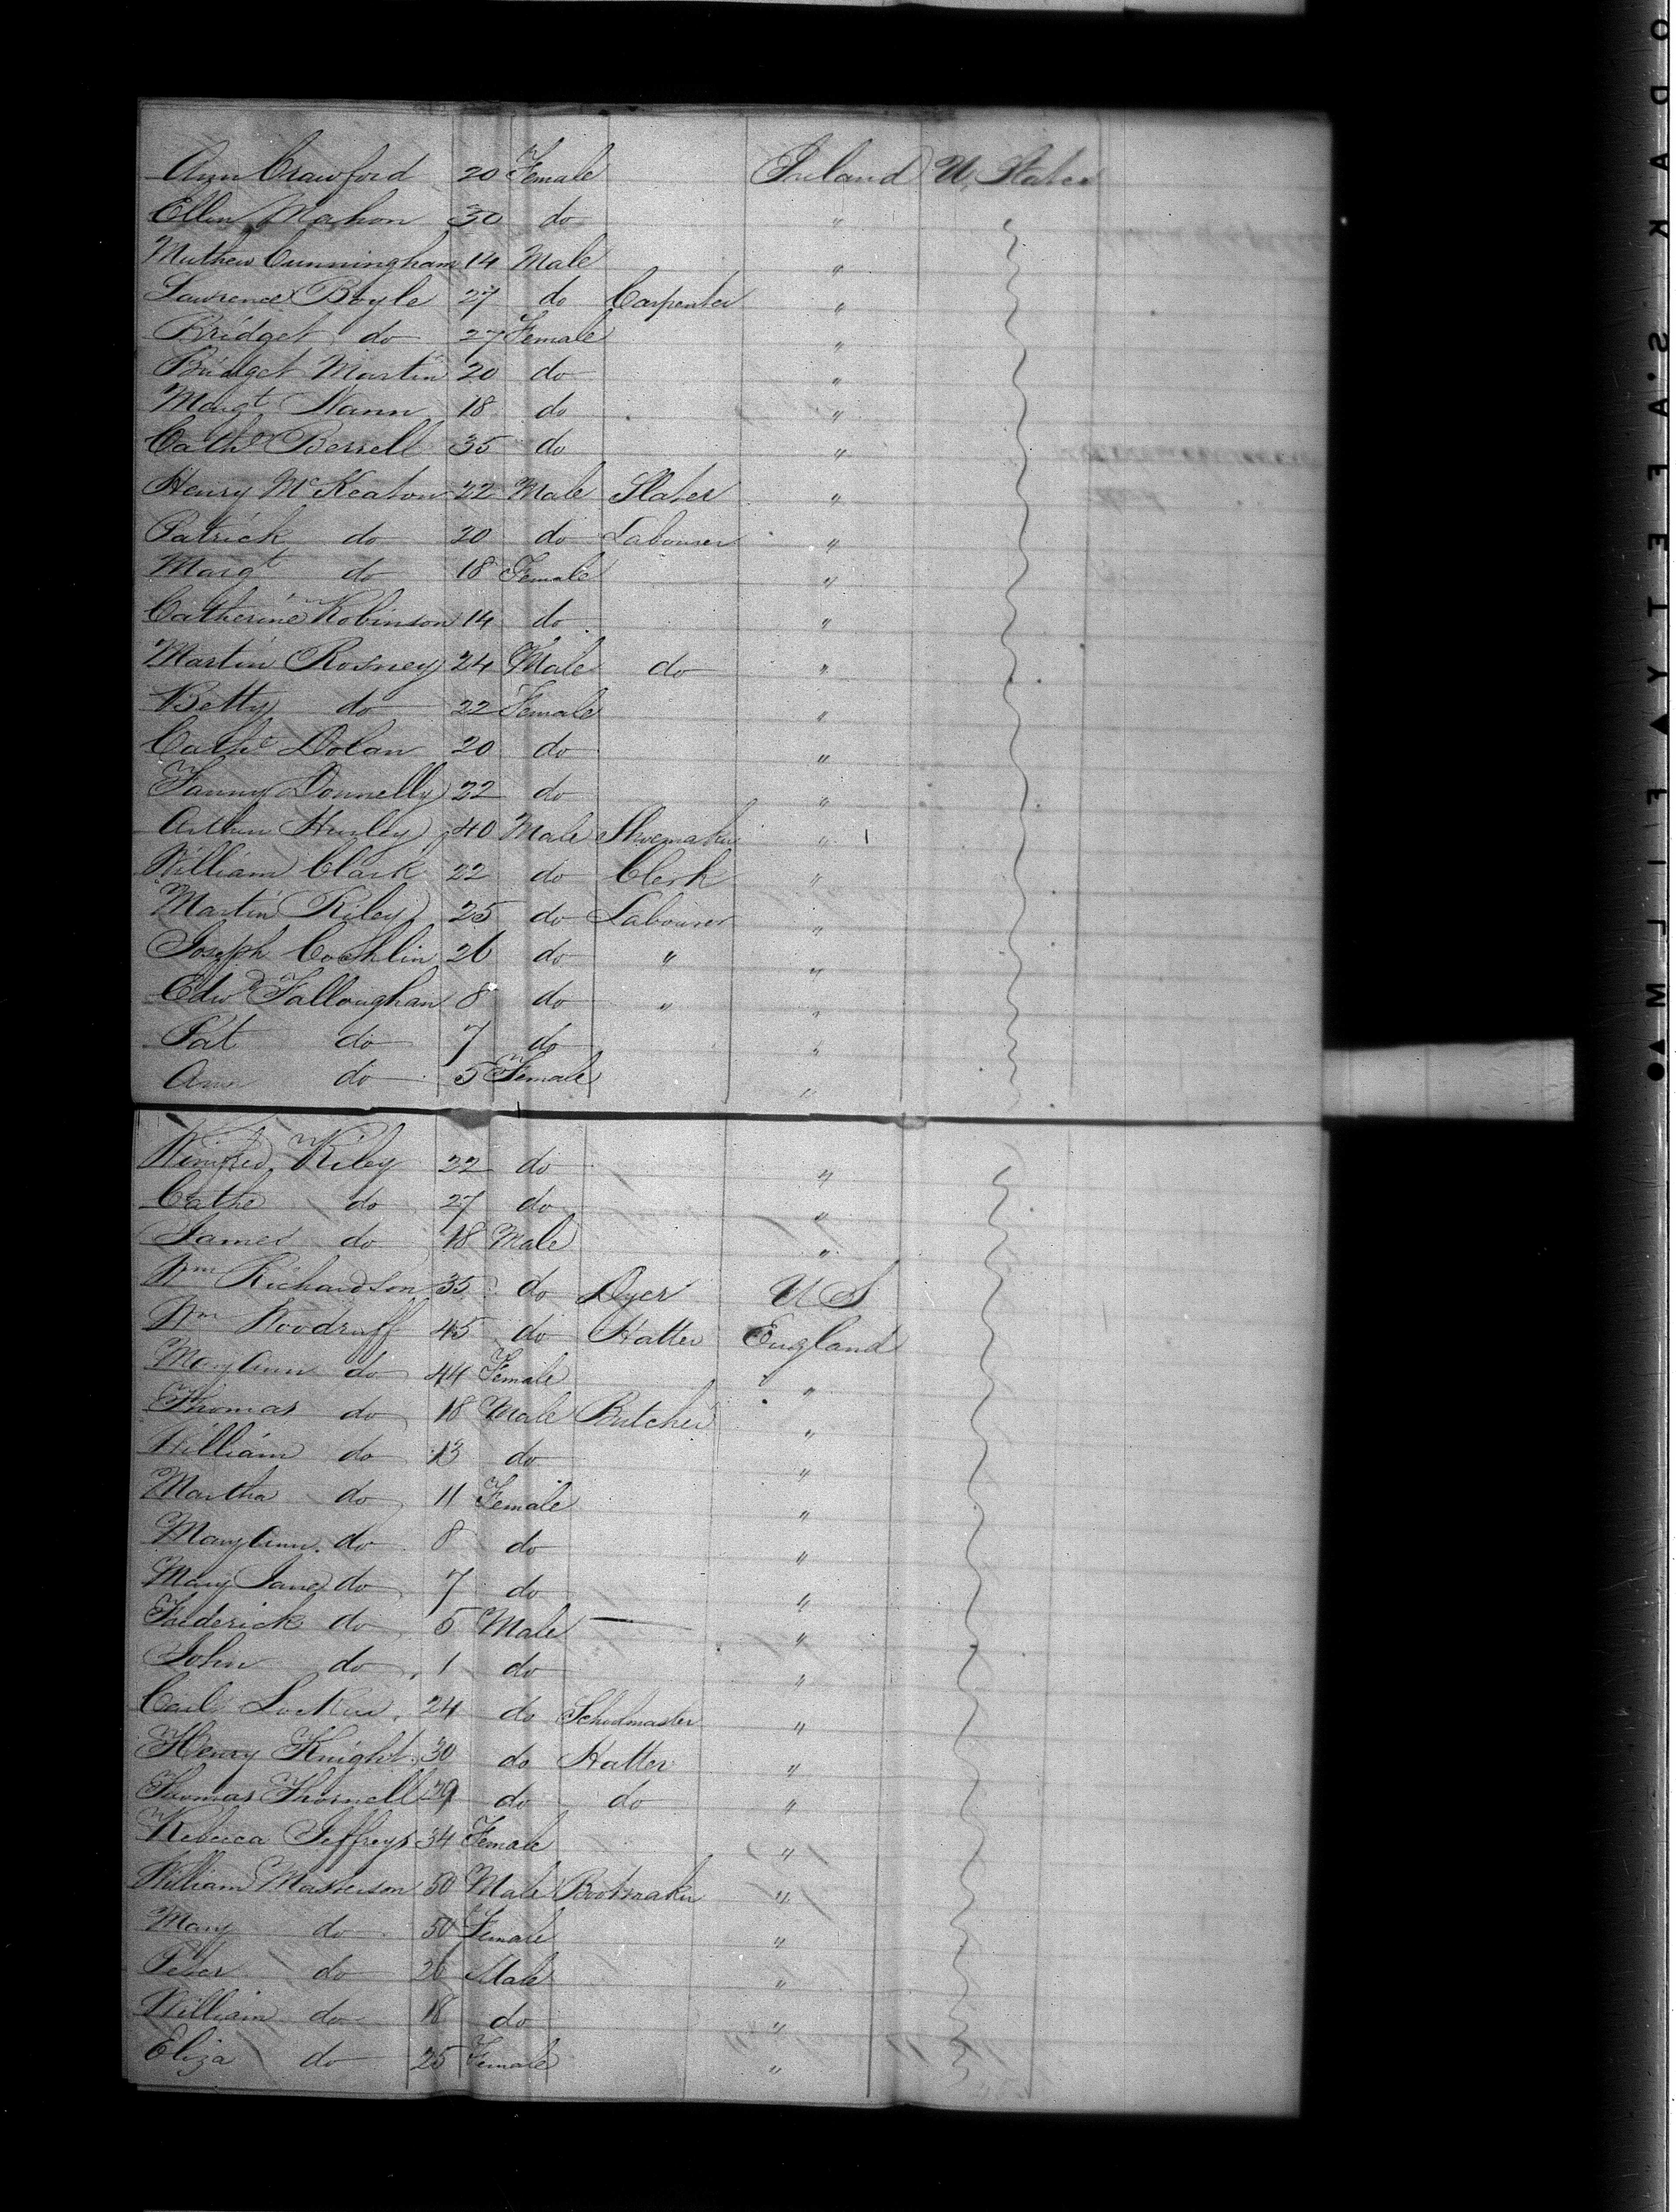 Ann Crawford 20 Female Ireland U. States
Ellen Mahon 30 do "
Mathew Cunningham 14 Male "
Lawrence Boyle 27 do Carpenter "
Bridget do 27 Female "
Bridget Martin 20 do "
Margt Nann 18 do "
Cathe Berrell 35 do "
Henry McKeaton 22 Male Slater "
Patrick do 20 do Labourer "
Margt do 18 Female "
Catherine Robinson 14 do "
Martin Rosney 24 Male do "
Betty do 22 Female "
Cathe Dolan 20 do "
Fanny Donnelly 22 do "
Arthur Hurley 40 Male Shoemaker "
William Clark 22 do Clerk "
Martin Riley 25 do Labourer "
Joseph Coghlin 26 do " "
Edwd Falloughan 8 do " "
Pat do 7 do "
Ann do 5 Female "
Winifred Riley 22 do "
Cathe do 27 do "
James do 18 Male "
Wm Richardson 35 do Dyer U S
Wm Woodruff 45 do Hatter England
Mary Ann do 44 Female "
Thomas do 18 Male Butcher "
William do 13 do "
Martha do 11 Female "
Mary Ann do 8 do "
Mary Jane do 7 do "
Frederick do 5 Male "
John do 1 do "
Carl 24 do Schoolmaster "
Henry Knight 30 do Hatter "
Thomas Thornell 29 do do "
Rebecca Jeffreys 34 Female "
William Masterson 50 Male Bootmaker "
Mary do 50 Female "
Peter do 26 Male "
William do 18 do "
Eliza do 25 Female "